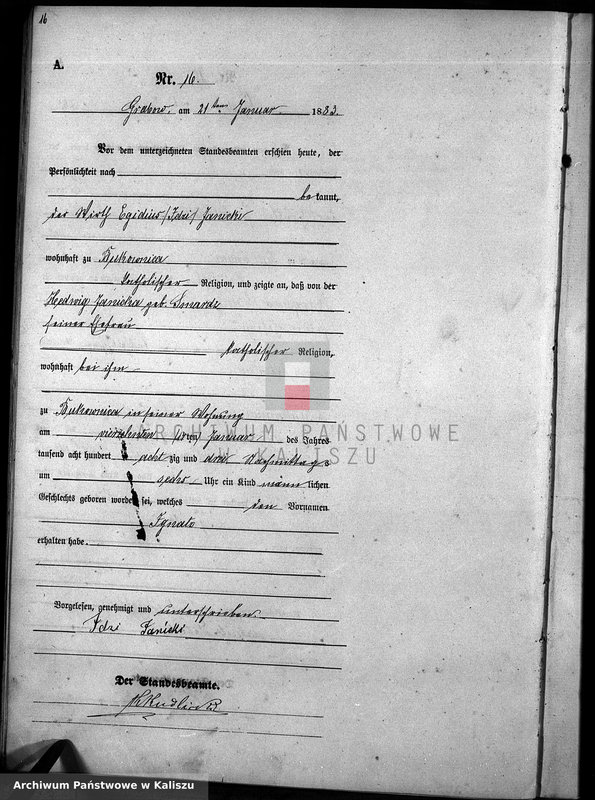 16
A.
Nr. 16.
Grabow, am 21 ten Januar 1883.
Vor dem unterzeichneten Standesbeamten erschien heute, der
Persönlichkeit nach
be kannt,
der Wirth Egidius /Idzi/ Janicki
wohnhaft zu Bukownica
katholischer Religion, und zeigte an, daß von der
Hedwig Janicka geb. Smardz
seiner Ehefrau
katholischer Religion,
wohnhaft bei ihm
zu Bukownica in seiner Wohnung
am vierzehnten Januar des Jahres
tausend acht hundert acht zig und drei Nachmittag
um sechs Uhr ein Kind männ lichen
Geschlechts geboren worden sei, welches den Vornamen
Ignatz
erhalten habe.
Vorgelesen, genehmigt und unterschrieben.
Idzi Janicki
Der Standesbeamte.
ARCHIWUM PAŃSTWOWE
W KALISZU
Archiwum Państwowe w Kaliszu